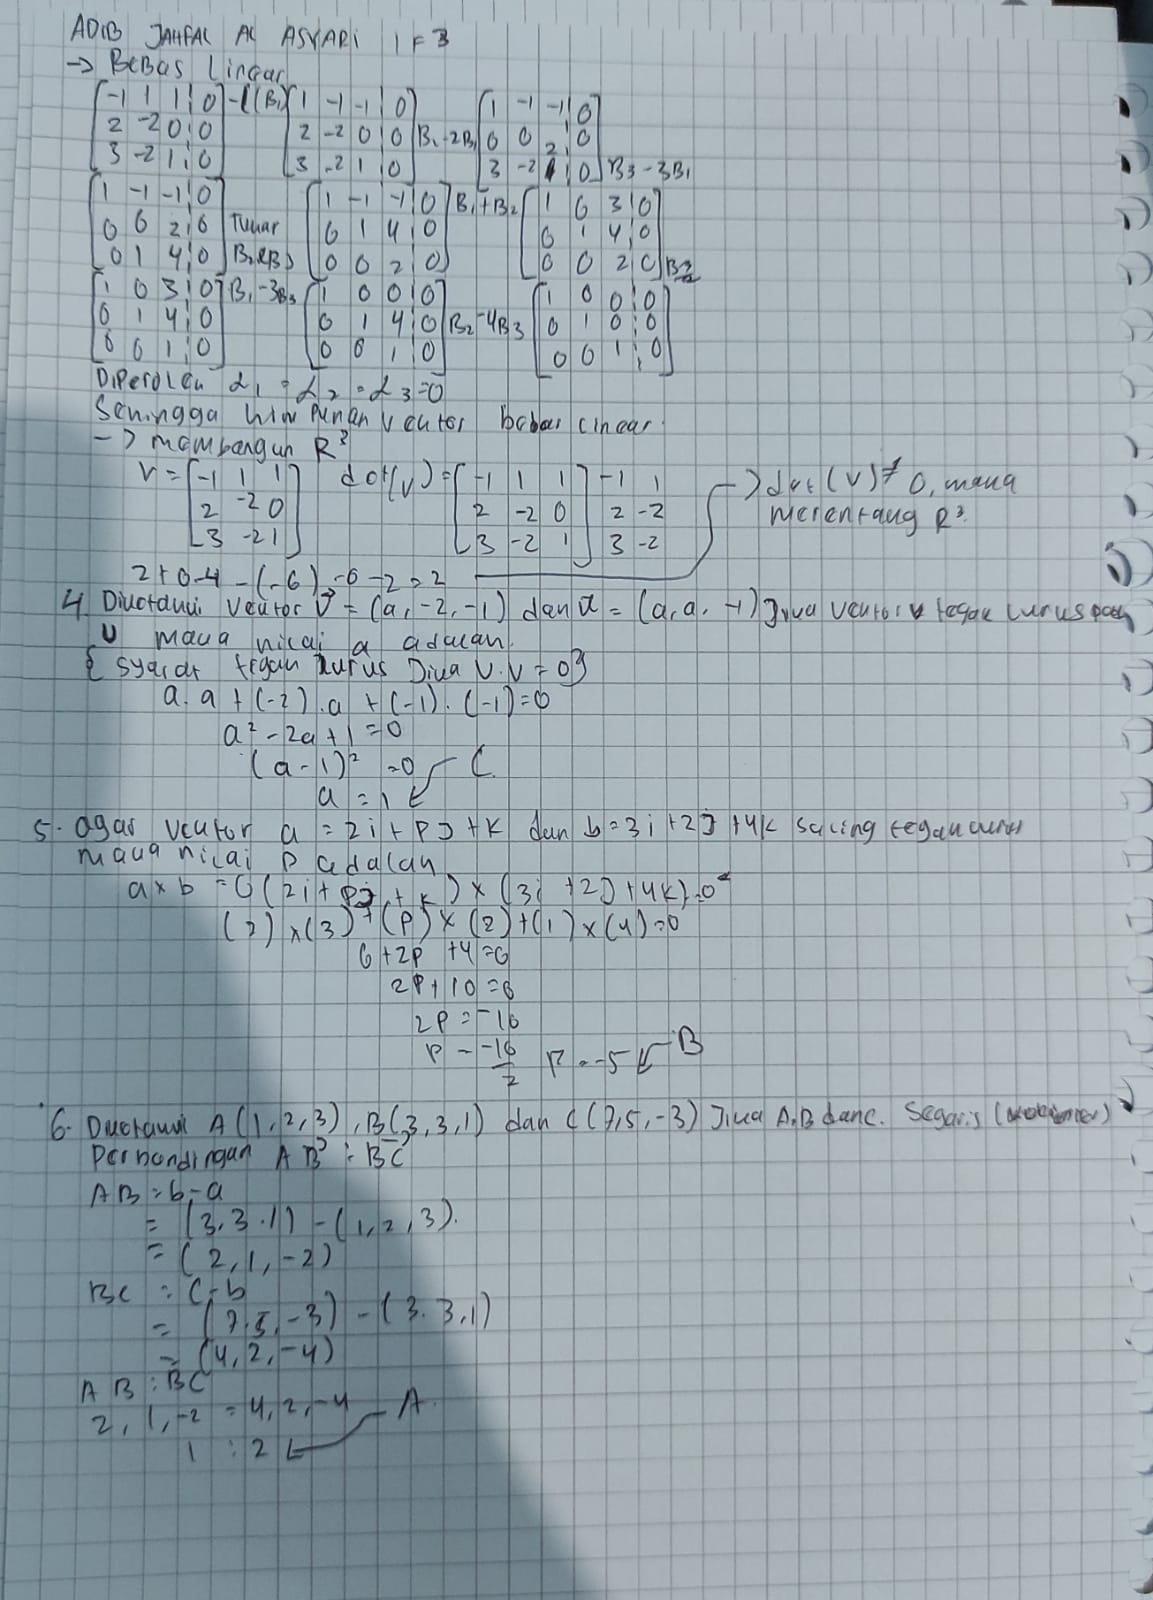 ADIB JAHFAL AL ASYARI IF 3
→ Bebas Linear
[-1 1 1 | 0] -1(B1) [1 -1 -1 | 0] [1 -1 -1 | 0]
[2 -2 0 | 0] [2 -2 0 | 0] B2-2B1 [0 0 2 | 0]
[3 -2 1 | 0] [3 -2 1 | 0] [3 -2 1 | 0] B3-3B1
[1 -1 -1 | 0] [1 -1 -1 | 0] B1+B2 [1 0 3 | 0]
[0 0 2 | 0] Tukar [0 1 4 | 0] [0 1 4 | 0]
[0 1 4 | 0] B2&B3 [0 0 2 | 0] [0 0 2 | 0]
[1 0 3 | 0] B1-3B3 [1 0 0 | 0] [1 0 0 | 0]
[0 1 4 | 0] [0 1 4 | 0] B2-4B3 [0 1 0 | 0]
[0 0 1 | 0] [0 0 1 | 0] [0 0 1 | 0]
Diperoleh α1 = α2 = α3 = 0
Sehingga himpunan vektor bebas linear
→ membangun R³
V = [-1 1 1] det(V) = [-1 1 1] -1 1 → det(V) ≠ 0, maka
[2 -2 0] [2 -2 0] 2 -2 merentang R³.
[3 -2 1] [3 -2 1] 3 -2
2+0-4-(-6)-0-2=2
4. Diketahui vektor V = (a, -2, -1) dan u = (a, a, -1) Jika vektor v tegak lurus pada
U maka nilai a adalah.
{ syarat tegak lurus Jika V.V = 0}
a.a + (-2).a + (-1).(-1)=0
a² - 2a + 1 = 0
(a-1)² = 0 C
a = 1
5. agar vektor a = 2i + PJ + K dan b = 3i + 2J + 4K saling tegak lurus
maka nilai P adalah
a x b = 0 (2i + PJ + K) x (3i + 2J + 4K) = 0
(2) x (3) + (P) x (2) + (1) x (4) = 0
6 + 2P + 4 = 0
2P + 10 = 0
2P = -10
P = -10/2 P = -5 ← B
6. Diketahui A (1,2,3), B (3,3,1) dan C (7,5,-3) Jika A,B dan C. Segaris (kolinier)
Perbandingan AB : BC
AB = b - a
= (3,3.1) - (1,2,3).
= (2,1,-2)
BC = C - b
= (7.5,-3) - (3.3,1)
= (4,2,-4)
AB : BC
2,1,-2 = 4,2,-4 A.
1 : 2